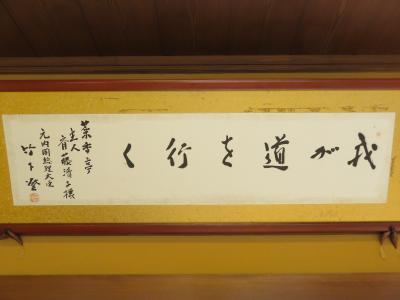 我が道を行く
菜香亭
主人
斉藤清子様
元内閣総理大臣
竹下登